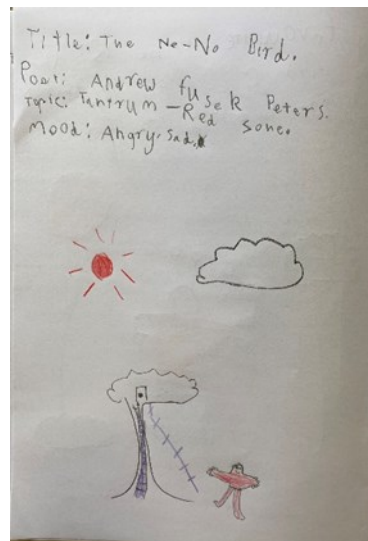 Title: The Ne-No Bird.
Poet: Andrew fusek Peters.
Topic: Tantrum - Red sone.
Mood: Angry, Sad.